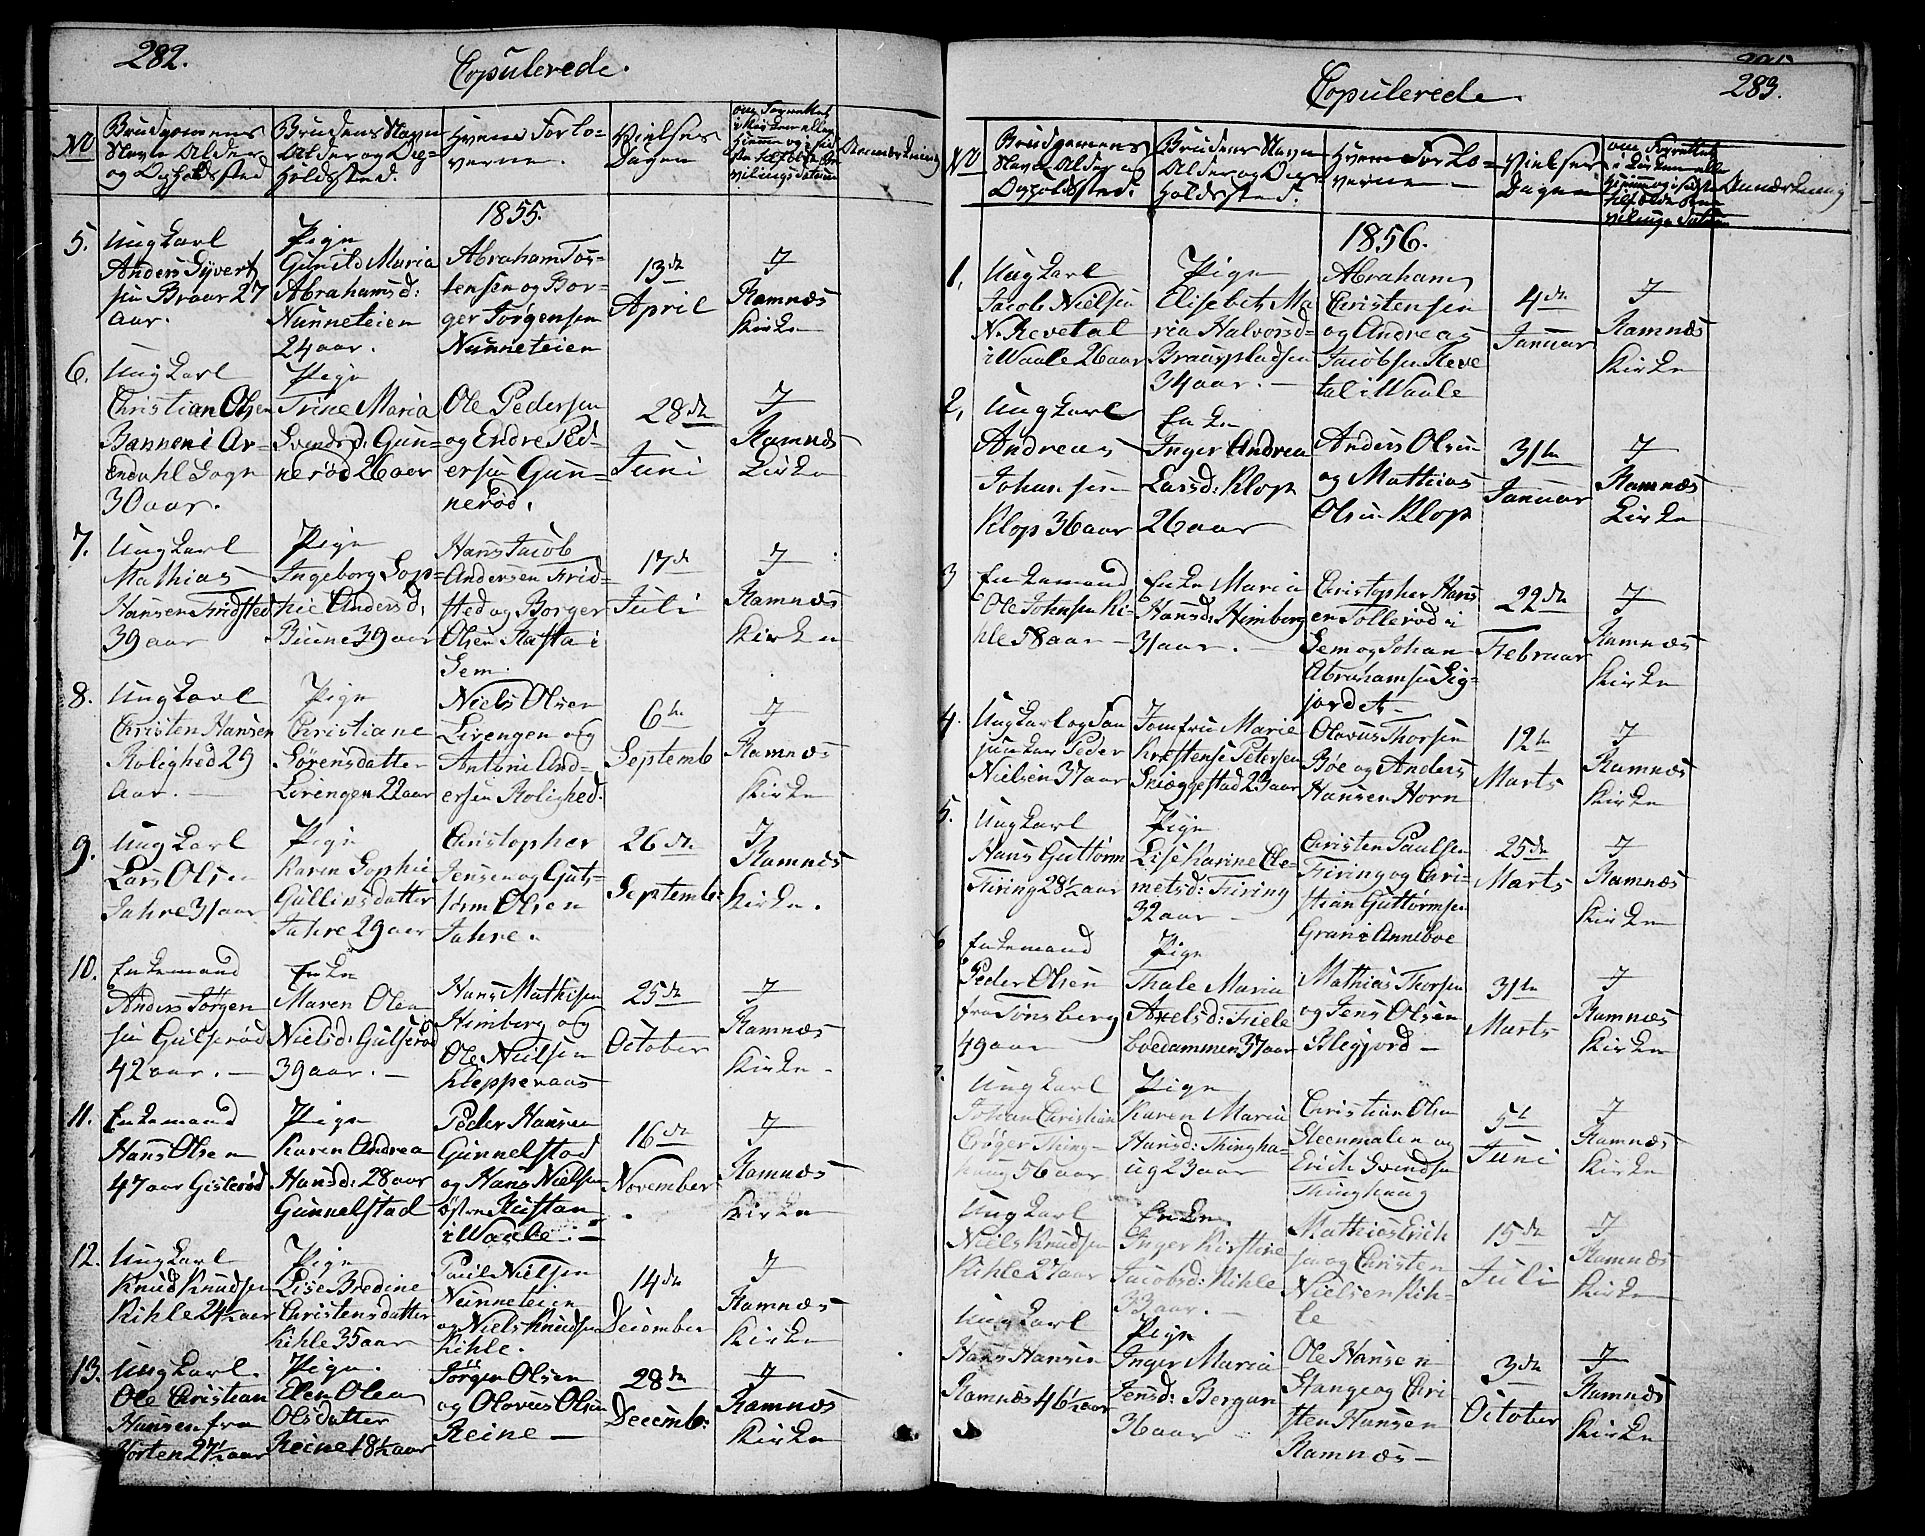 282.
Copulerede.
No
Brudgomens
Navn Alder
og Opholdssted
Brudens Navn
Alder og Op-
holdssted.
Hvem Forlo-
verne.
Vielses
Dagen
om Forrettet
i Kirken eller
Hjemme og i
Anmærkning
1855.
5.
Ungkarl
Anders Syvert
sen Braar 27
aar.
Pige
Gunild Maria
Abrahamsd:
Nunneteien
24 aar.
Abraham Tos-
tensen og Bor-
ger Jørgensen
Nunneteien
13de
April
I
Ramnæs
Kirke
6.
Ungkarl
Christian Olsen
Bannen i Ar-
endahl Sogn
30 aar.
Pige
Trine Maria
Svendsd: Gun-
nerød 26 aar
Ole Pedersen
og Endre Ped-
ersen Gun-
nerød.
28de
Juni
I
Ramnæs
Kirke
7.
Ungkarl
Mathias
Hansen Fridsted
39 aar
Pige
Ingeborg Sop-
hie Andersd:
Biune 39 aar
Hans Jacob
Andersen Frid-
sted og Borger
Olsen Rasta i
Sem.
17de
Juli
I
Ramnæs
Kirke
8.
Ungkarl
Christen Hansen
Rolighed 29
Aar. -
Pige
Christiane
Sørensdatter
Lirengen 22 aar
Niels Olsen
Lirengen og
Antoni And-
ersen Rolighed.
6te
Septemb
I
Ramnæs
Kirke
9.
Ungkarl
Lars Olsen
Jahre 31 aar
Pige
Karen Sophie
Gulliksdatter
Jahre 29 aar
Christopher
Jensen og Gut-
torm Olsen
Jahre.
26de
Septemb:
I
Ramnæs
Kirke.
10.
Enkemand
Anders Jørgen
sen Gulserød
42 aar. -
Enke
Maren Olea
Nielsd: Gulserød
39 aar. -
Hans Mathisen
Himberg og
Ole Nielsen
Klepperaas
25de
October
I
Ramnæs
Kirke -
11.
Enkemand
Hans Olsen
47 aar Gislerød
Pige
Karen Andrea
Hansd: 28 aar
Gunnelstad
Peder Hansen
Gunnelstad
og Hans Nielsen
østre Rustan
i Waale. -
16de
November
I
Ramnæs
Kirke
12.
Ungkarl
Knud Knudsen
Kihle 24½ aar
Pige
Lise Bredine
Christensdatter
Kihle 35 aar
Paul Nielsen
Nunneteien
og Niels Knudsen
Kihle.
14de
December
I
Ramnæs
Kirke
13.
Ungkarl.
Ole Christian
Hansen fra
Horten 27½ aar
Pige.
Elen Olea
Olsdatter
Reine 18½ aar
Jørgen Olsen
og Olavus Olsen
Reine -
28de
Decemb:
I
Ramnæs
Kirke
283.
Copulerede.
No
Brudgomens
Navn Alder og
Opholdssted.
Brudens Navn
Alder og Op-
holdssted.
Hvem Forlo-
verne -
Vielses
Dagen
om Forrettet
i Kirken elle
Anmærkning
1856.
1,
Ungkarl
Jacob Nielsen
N. Revetal
i Waale 26 aar
Pige
Elisebet Ma
ria Halvorsd-
Braarpladsen
34 aar. -
Abraham
Christensen
og Andreas
Jacobsen Reve
tal i Waale
4de
Januar
I
Ramnæs
Kirke
2,
Ungkarl
Andreas
Johansen
Klop 36 aar
Enke
Inger Andrea
Larsd: Klop
26 aar
Anders Olsen
og Mathias
Olsen Klop
31te
Januar
I
Ramnæs
Kirke
3
Enkemand
Ole Johnsen Ki-
hle 58 aar -
Enke Maria
Hansd: Himberg
31 aar. -
Christopher Hans
en Tollerød i
Sem og Johan
Abrahamsen Sig-
jordet -
22de
Februar
I
Ramnæs
Kirke
4.
Ungkarl og Fan
junker Peder
Nielsen 37 aar
Jomfru Marie
Krestense Petersen
Skiæggestad 23 aar
Olavus Thorsen
Bøe og Anders
Hansen Horn
12te
Marts
I
Ramnæs
Kirke
5.
Ungkarl
Hans Guttorm
Firing 28½ aar
Pige
Lise Karine Cle-
metsd: Firing
32 aar -
Christen Paulsen
Firing og Chri-
stian Guttormsen
Gran i Anneboe
25de
Marts
I
Ramnæs
Kirke
6
Enkemand
Peder Olsen
fra Tønsberg
49 aar
Pige
Thale Maria
Axelsd: Fiele
boedammen 37 aar
Mathias Thorsen
og Jens Olsen
Blegjord -
31te
Marts
I
Ramnæs
Kirke
Ungkarl
Johan Christian
Crøger Thing-
haug 56 aar
Pige
Karen Maria
Hansd: Thingha-
ug 23 aar
Christian Olsen
Steenmalen og
Erich Svendsen
Thinghaug
5te
Juni
I
Ramnæs
Kirke
Ungkarl
Niels Knudsen
Kihle 27 aar
Enke.
Inger Kirstine
Jacobsd: Kihle
33 aar. -
Mathias Erich
sen og Christen
Nielsen Kih-
le
15de
Juli
I
Ramnæs
Kirke
Ungkarl
Hans Hansen
Ramnæs 46½ aar
Pige
Inger Maria
Jensd: Bergan
36 aar
Ole Hansen
Stange og Chri
sten Hansen
Ramnæs -
3de
October
I
Ramnæs
Kirke